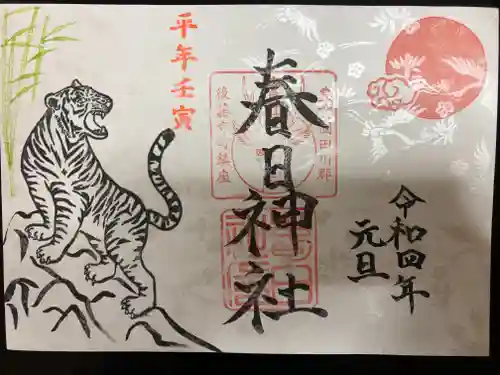 平年壬寅
春日神社
令和四年
元旦